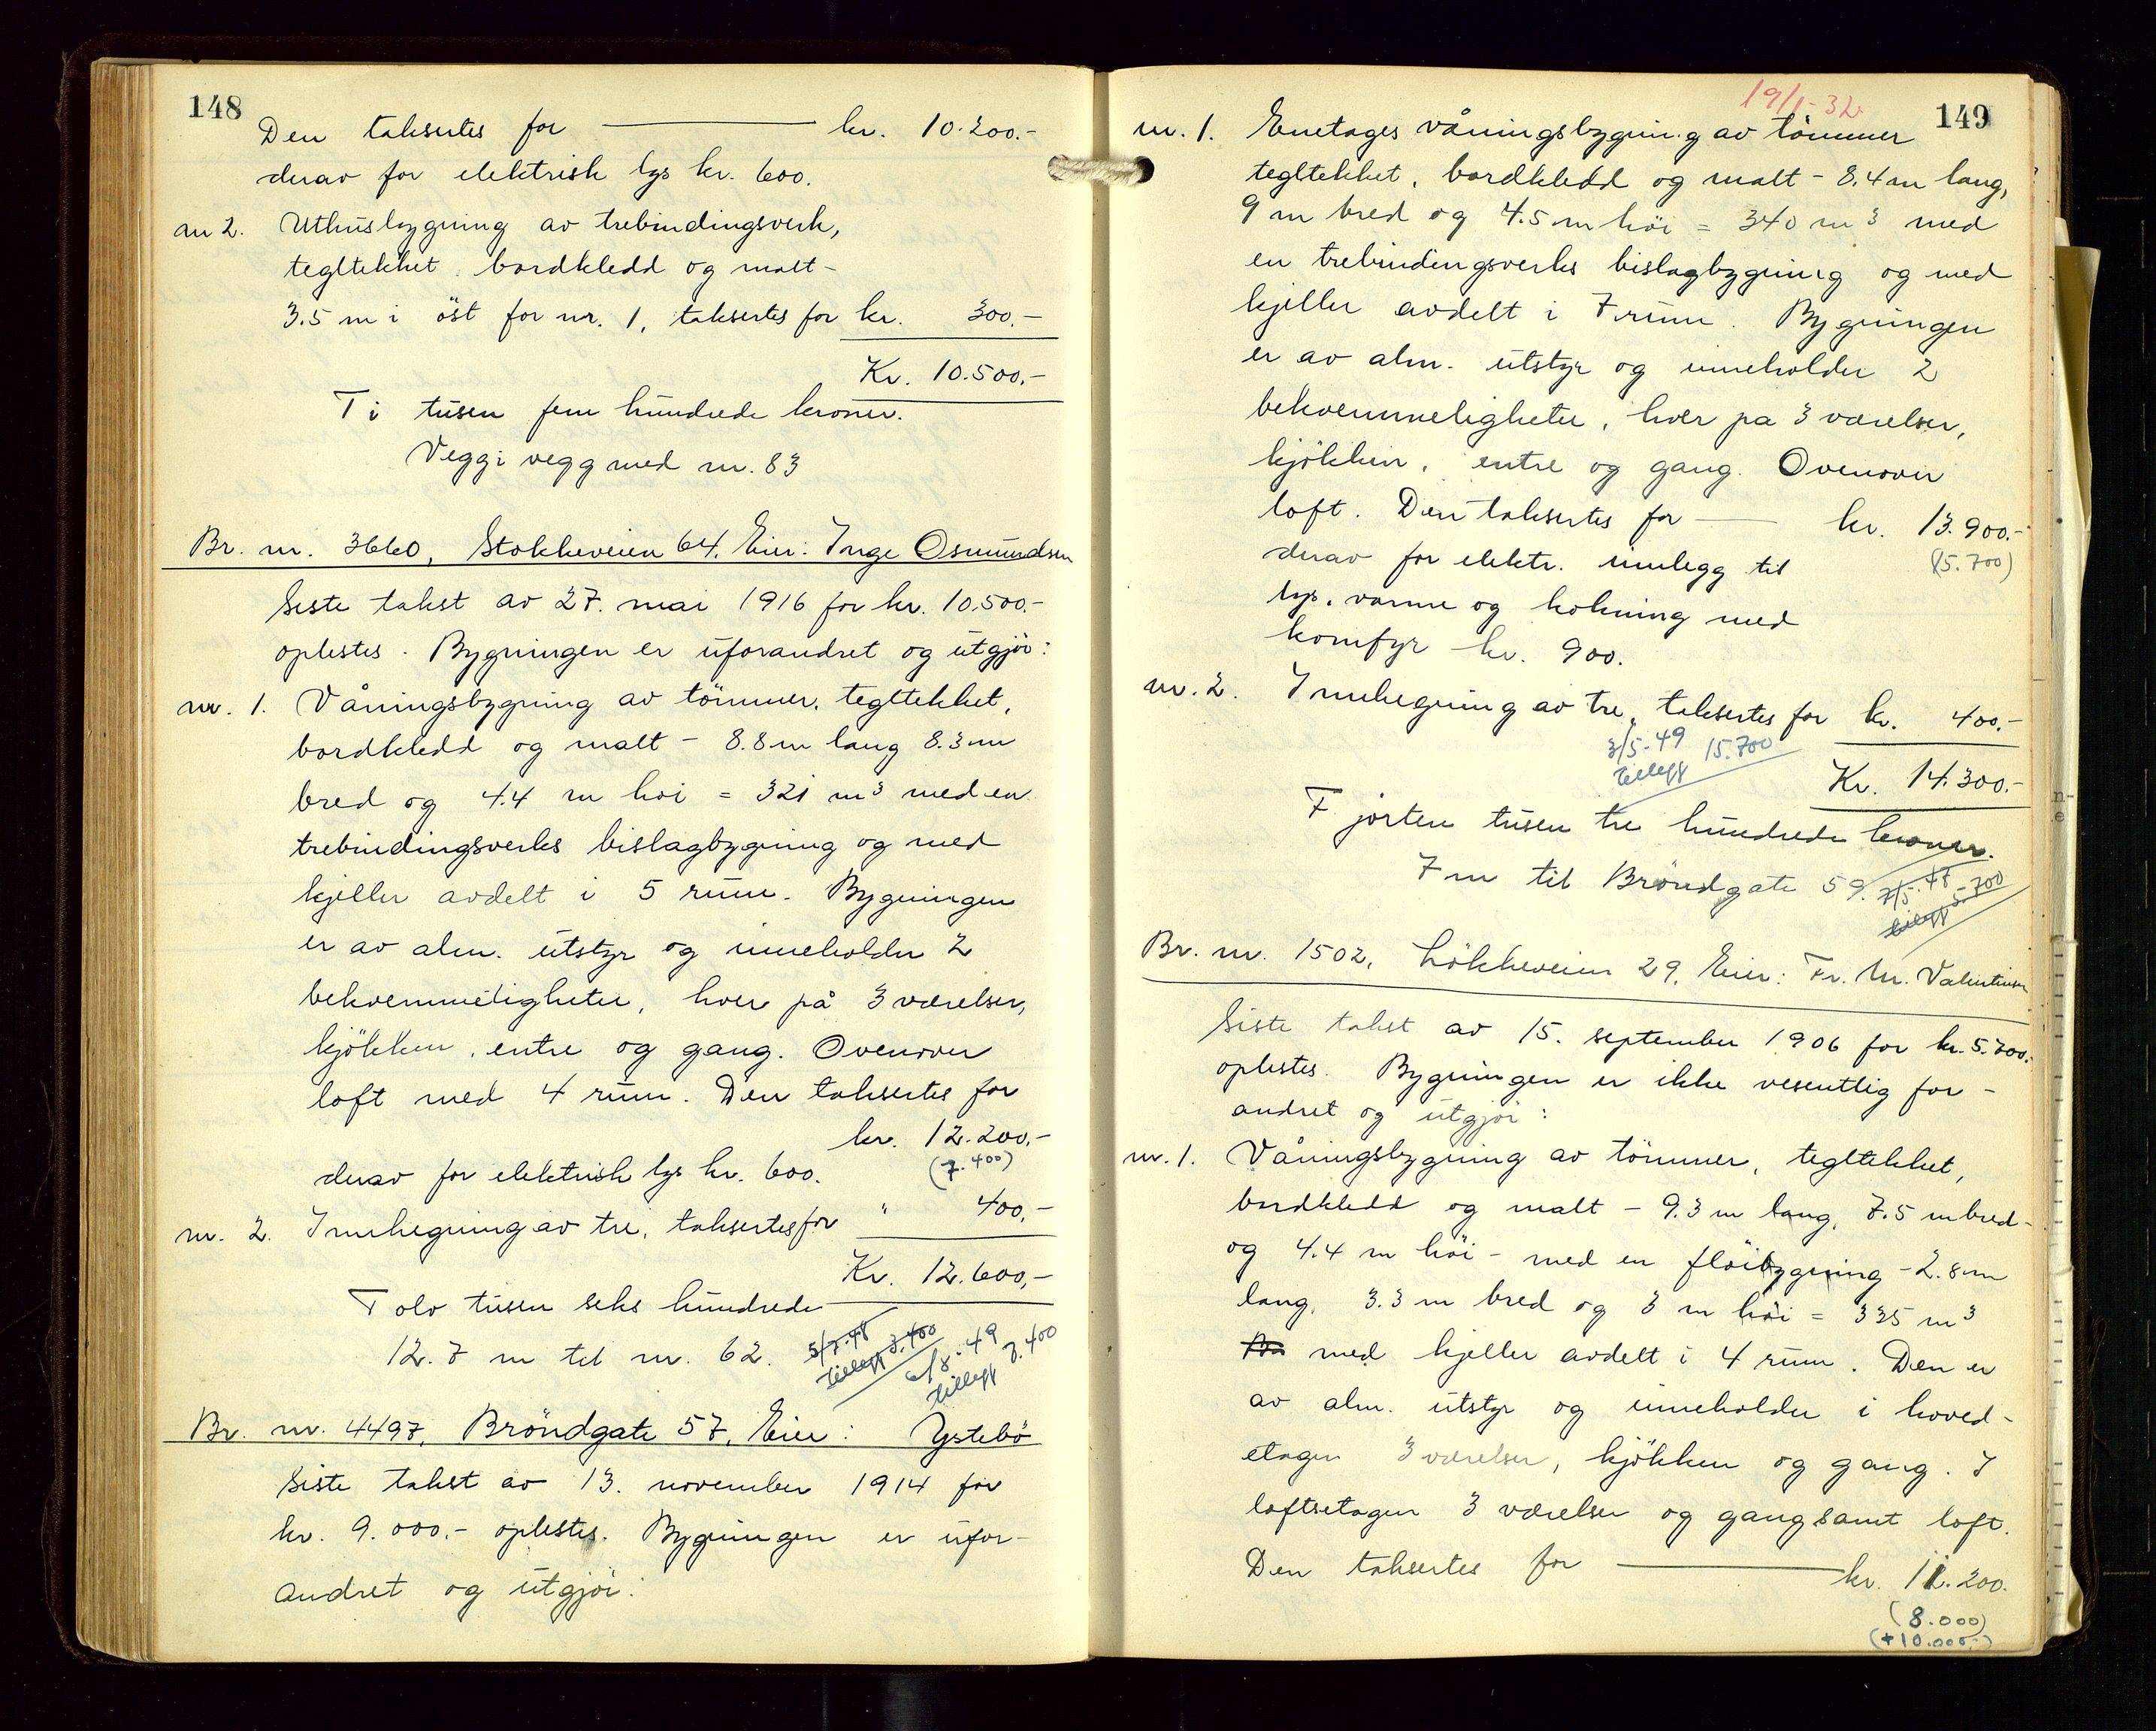 148
Den taksertes for ——— kr. 10.200.-
derav for elektrisk lys kr. 600.
nr 2. Uthusbygning av trebindingsverk,
tegltekket, bordkledd og malt -
3.5 m i öst for nr. 1, taksertes for kr. 300.-
Kr. 10.500.-
Ti tusen fem hundrede kroner.
Vegg i vegg med nr. 83
Br. nr. 3660, Stokkeveien 64. Eier: Inge Osmundsen
Siste takst av 27. mai 1916 for kr. 10.500.-
oplestes. Bygningen er uforandret og utgjör:
nr. 1. Våningsbygning av tömmer, tegltekket,
bordkledd og malt - 8.8 m lang 8.3 m
bred og 4.4 m höi = 321 m³ med en
trebindingsverks bislagbygning og med
kjeller avdelt i 5 rum. Bygningen
er av alm. utstyr og inneholder 2
bekvemmeligheter, hver på 3 værelser,
kjökken, entre og gang. Ovenover
loft med 4 rum. Den taksertes for
kr. 12.200.-
(7.400)
derav for elektrisk lys kr. 600.
nr. 2. Innhegning av tre, taksertes for " 400.-
Kr. 12.600.-
Tolv tusen seks hundrede
12.7 m til nr. 62. 5/7-48 tillegg 3.400 6/8-49 tillegg 7.400
Br. nr. 4497, Bröndgate 57, Eier: Ystebö
Siste takst av 13. november 1914 for
kr. 9.000.- oplestes. Bygningen er ufor-
andret og utgjör:
19/1-32
149
nr. 1. Enetages våningsbygning av tömmer
tegltekket, bordkledd og malt - 8.4 m lang,
9 m bred og 4.5 m höi = 340 m³ med
en trebindingsverks bislagbygning og med
kjeller avdelt i 7 rum. Bygningen
er av alm. utstyr og inneholder 2
bekvemmeligheter, hver på 3 værelser,
kjökken, entre og gang. Ovenover
loft. Den taksertes for — kr. 13.900.-
(15.700)
derav for elektr. innlegg til
lys, varme og kokning med
komfyr kr. 900.
nr. 2. Innhegning av tre, taksertes for kr. 400.-
3/5-49 15.700
tillegg
Kr. 14.300.-
Fjorten tusen tre hundrede kroner.
7 m til Bröndgate 59. 7/5-48 tillegg 5.700
Br. nr. 1502, Lökkeveien 29, Eier: Fr. M. Valentinsen
Siste takst av 15. september 1906 for kr. 5.700.-
oplestes. Bygningen er ikke vesentlig for-
andret og utgjör:
nr. 1. Våningsbygning av tömmer, tegltekket,
bordkledd og malt - 9.3 m lang, 7.5 m bred -
og 4.4 m höi - med en flöibygning - 2.8 m
lang, 3.3 m bred og 3 m höi = 335 m³
med kjeller avdelt i 4 rum. Den er
av alm. utstyr og inneholder i hoved-
etagen 3 værelser, kjökken og gang. I
loftsetagen 3 værelser og gang samt loft.
Den taksertes for ——— kr. 11.200.
(8.000)
(+10.000.-)